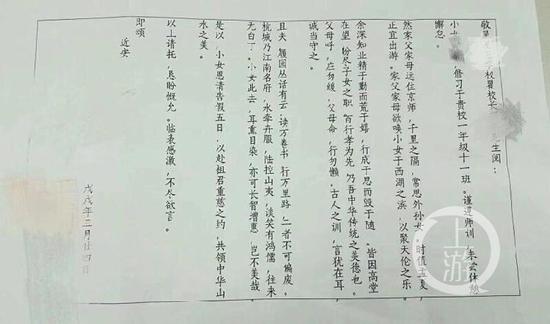 敬呈 校暨校长 先生阅：
小女 修习于贵校一年级十一班。谨遵师训，未尝休憩
懈怠。
然家父家母远住京师，千里之隔，常思外孙女。时值孟夏，
正宜出游。家父家母欲唤小女于西湖之滨，以聚天伦之乐。
余深知业精于勤而荒于嬉，行成于思而毁于随。皆因高堂
在望，纷尽子女之职。百行孝为先，乃吾中华传统之美德也。
父母呼，应勿缓，父母命，行勿懒，古人之训，言犹在耳，
诚当守之。
且夫，履园丛话有云，读万卷书，行万里路，二者不可偏废，
杭城乃江南名府，水牵卉服，陆控山夷，谈笑有鸿儒，往来
无白丁。小女此去，耳熏目染，亦可长智增惠，岂不美哉。
是以，小女恳请告假五日，以赴祖君重慈之约，共领中华山
水之美。
以上请托，恳盼慨允。临表感激，不尽欲言。
即颂
近安
戊戌年三月廿四日
上游